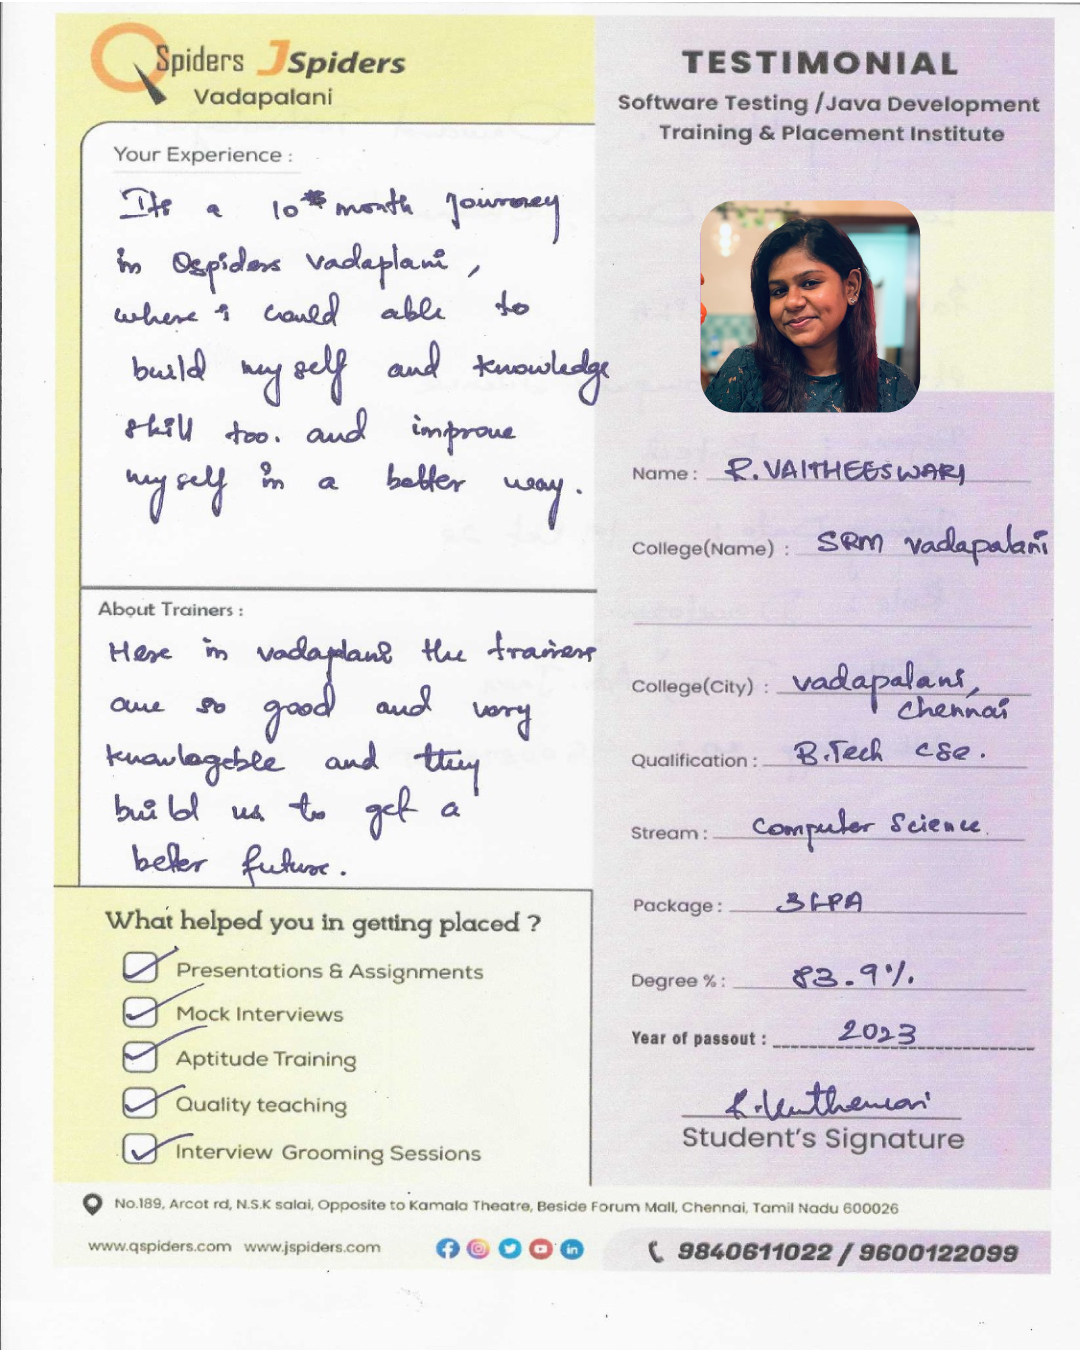 QSpiders JSpiders
Vadapalani
TESTIMONIAL
Software Testing /Java Development
Training & Placement Institute
Your Experience :
Its a 10 month journey
in Qspiders Vadaplani ,
where i could able to
build my self and knowledge
skill too. and improve
my self in a better way.
About Trainers :
Here in vadaplani the trainers
are so good and very
knowlageble and they
build us to get a
better future.
What helped you in getting placed ?
Presentations & Assignments
Mock Interviews
Aptitude Training
Quality teaching
Interview Grooming Sessions
Name : R. VAITHEESWARI
College(Name) : SRM vadapalani
College(City) : vadapalani,
chennai
Qualification : B.Tech CSE.
Stream : Computer Science.
Package : 3LPA
Degree % : 83.9%.
Year of passout : 2023
Student's Signature
No.189, Arcot rd, N.S.K salai, Opposite to Kamala Theatre, Beside Forum Mall, Chennai, Tamil Nadu 600026
www.qspiders.com www.jspiders.com
9840611022 / 9600122099